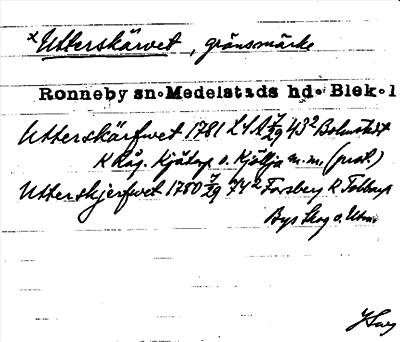 x Utterskärvet, gränsmärke
Ronneby sn. Medelstads hd. Blek. l
Utterskärfwet 1781 LSA 7/29 43² Bolmstedt
K Råg. Kjätorp o. Kjöllja m.m. (prot.)
Utterskjerfwet 1780 7/29 74² Forsberg K Tolltorp
Bys Skog o. Utm.